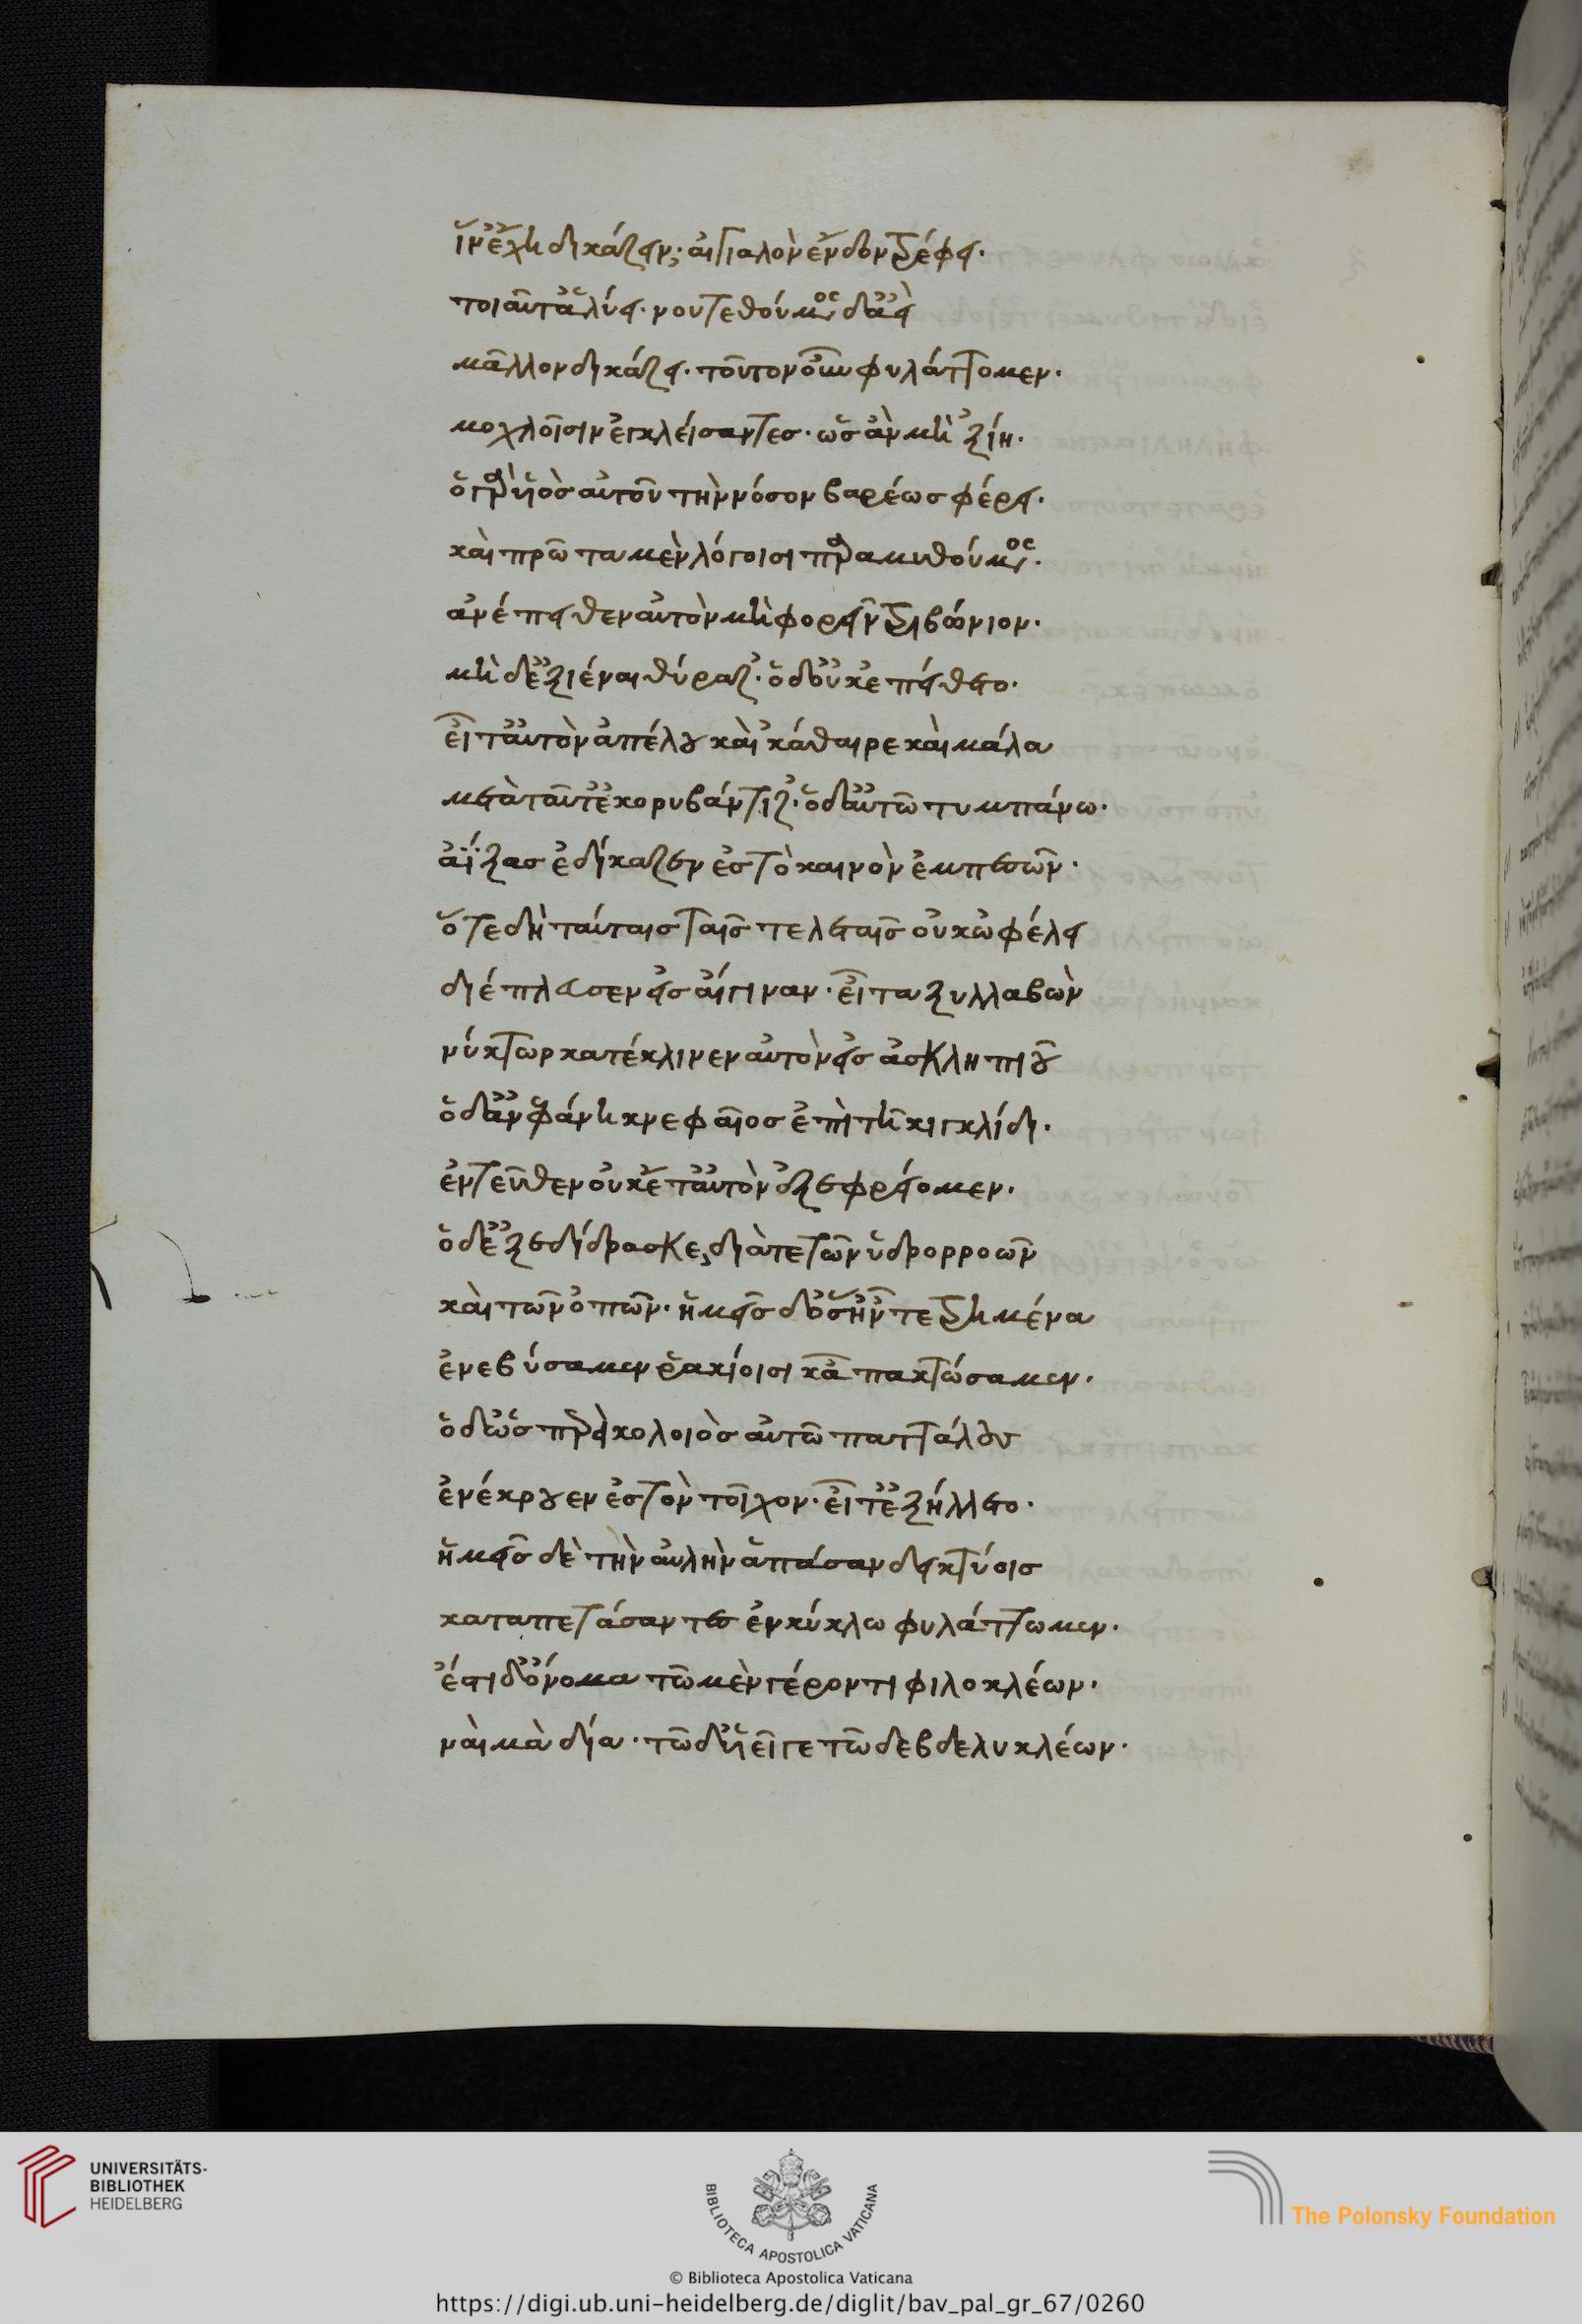 ἵν' ἔχῃ δικάζειν; αἰγιαλὸν ἔνδον τρέφει.
τοιαῦτ' ἀλύει. νουθετούμενος δ' ἀεὶ
μᾶλλον δικάζει. τοῦτον οὖν φυλάττομεν.
μοχλοῖσιν ἐγκλείσαντες. ὡς ἂν μὴ 'ξίῃ.
ὁ γὰρ υἱὸς αὐτοῦ τὴν νόσον βαρέως φέρει.
καὶ πρῶτα μὲν λόγοισι παραμυθούμενος.
ἀνέπειθεν αὐτὸν μὴ φορεῖν τριβώνιον.
μὴ δ' ἐξιέναι θύραζ'. ὁ δ' οὐκ ἐπείθετο.
εἶτ' αὐτὸν ἀπέλου καὶ 'κάθαιρε καὶ μάλα
μετὰ ταῦτ' ἐκορυβάντιζ'. ὁ δ' αὐτῷ τυμπάνῳ.
ἀΐξας ἐδίκαζεν ἐς τὸ καινὸν ἐμπεσών.
ὅτε δὴ ταύταις ταῖς τελεταῖς οὐκ ὠφέλει
διέπλευσεν εἰς αἴγιναν. εἶτα ξυλλαβὼν
νύκτωρ κατέκλινεν αὐτὸν εἰς ἀσκληπιοῦ
ὁ δ' ἀνεφάνη κνεφαῖος ἐπὶ τῇ κιγκλίδι.
ἐντεῦθεν οὐκέτ' αὐτὸν ἐξεφρείομεν.
ὁ δ' ἐξεδίδρασκε, διά τε τῶν ὑδρορροῶν
καὶ τῶν ὀπῶν. ἡμεῖς δ' ὅσ' ἦν τετρημένα
ἐνεβύσαμεν ῥακίοισι κἀπακτώσαμεν.
ὁ δ' ὡσπερεὶ κολοιὸς αὑτῷ παττάλους
ἐνέκρουεν ἐς τὸν τοῖχον. εἶτ' ἐξήλλετο.
ἡμεῖς δὲ τὴν αὐλὴν ἅπασαν δεικτύοις
καταπετάσαντες ἐν κύκλῳ φυλάττωμεν.
ἔστι δ' ὄνομα τῷ μὲν γέροντι φιλοκλέων.
ναὶ μὰ δία. τῷ δ' υἱεῖ γε τῷ δε βδελυκλέων.
UNIVERSITÄTS-
BIBLIOTHEK
HEIDELBERG
BIBLIOTECA APOSTOLICA VATICANA
The Polonsky Foundation
© Biblioteca Apostolica Vaticana
https://digi.ub.uni-heidelberg.de/diglit/bav_pal_gr_67/0260